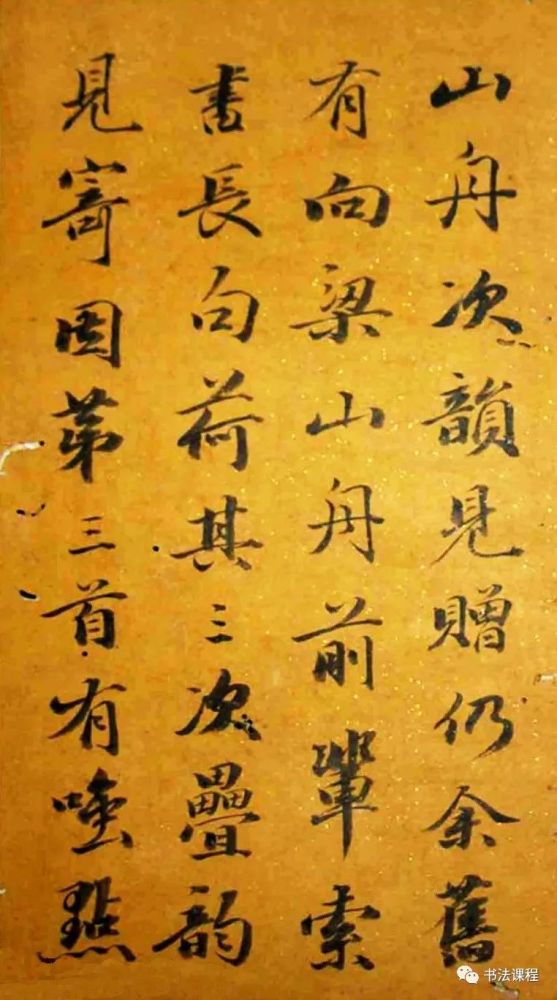 山舟次韻見贈仍余舊
有向梁山舟前輩索
書長句荷其三次疊韵
見寄因第三首有唾點
书法课程